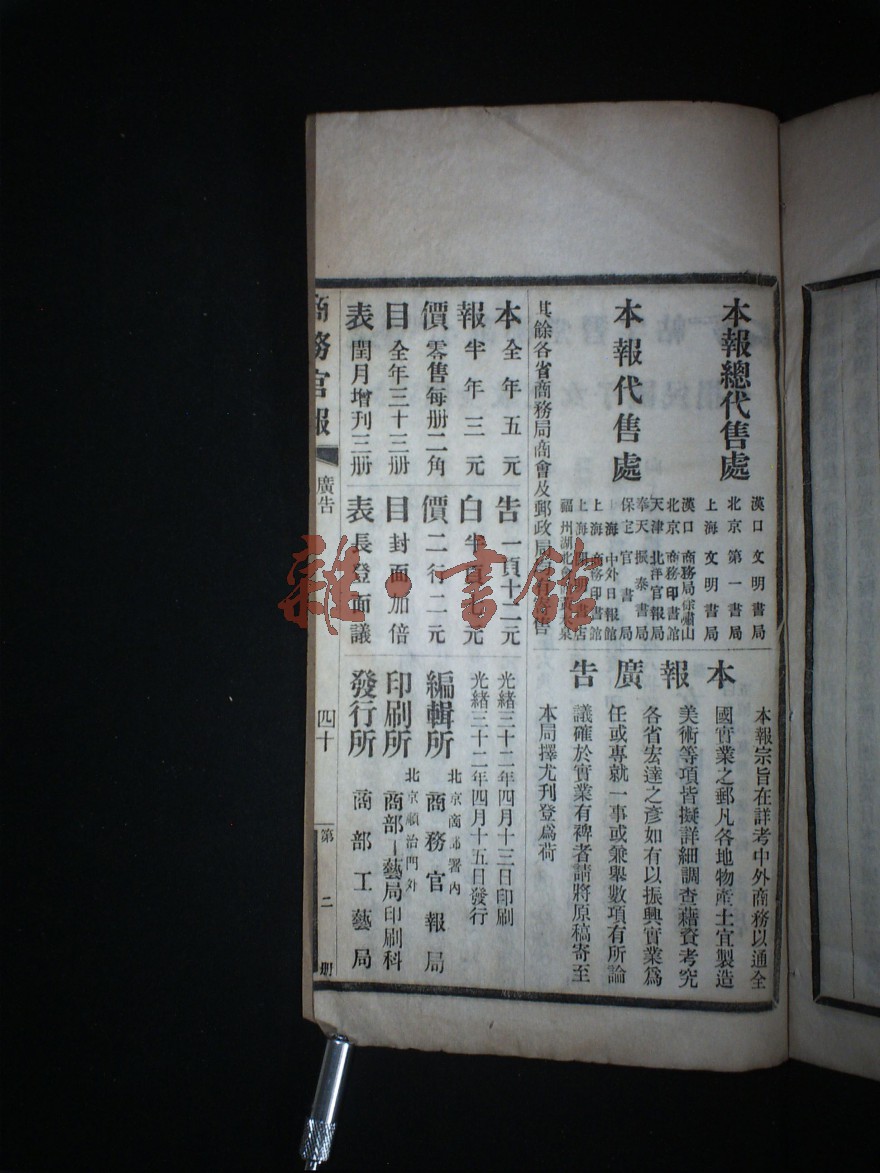 本報總代售處
漢口 文明書局
北京 第一書局
上海 文明書局
本報代售處
漢口 商務局徐嘯山
北京 商務印書館
天津 北洋官報局
奉天 振泰書局
保定 官書局
上海 中外日報館
上海 商務印書館
上海 開明書店
福州湖北
其餘各省商務局商會及郵政局
本報廣告
本報宗旨在詳考中外商務以通全
國實業之郵凡各地物產土宜製造
美術等項皆擬詳細調查藉資考究
各省宏達之彥如有以振興實業爲
任或專就一事或兼舉數項有所論
議確於實業有裨者請將原稿寄至
本局擇尤刊登爲荷
本報價目表
全年五元
半年三元
零售每册二角
全年三十三册
閏月增刊三册
告白價目表
一頁十二元
半頁元
二行二元
封面加倍
長登面議
光緒三十二年四月十三日印刷
光緒三十二年四月十五日發行
編輯所 北京商部署内 商務官報局
印刷所 北京順治門外 商部工藝局印刷科
發行所 商部工藝局
商務官報 廣告 四十 第二册
雜·書館